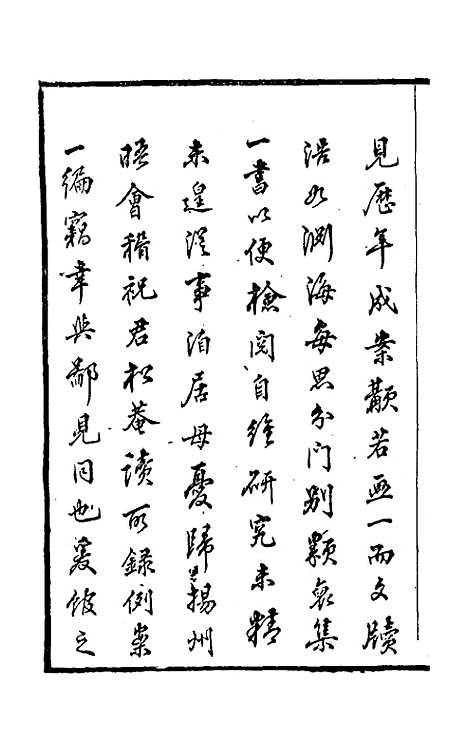 見歷年成案顜若畫一而文牘
浩如淵海每思分門別類裒集
一書以便檢閱自維研究未精
未遑從事洎居母憂歸揚州
晤會稽祝君松菴讀所錄例案
一編竊幸與鄙見同也爰館之